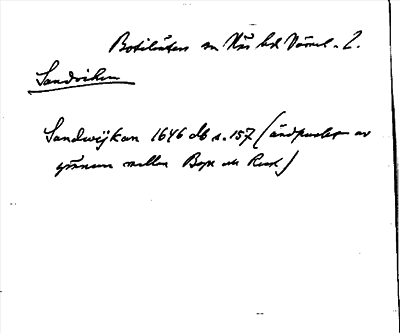 Botilsäters sn Näs hd Värml. 2.
Sandviken
Sandwijkan 1646 db s. 157 (ändpunkt av
gränsen mellan och